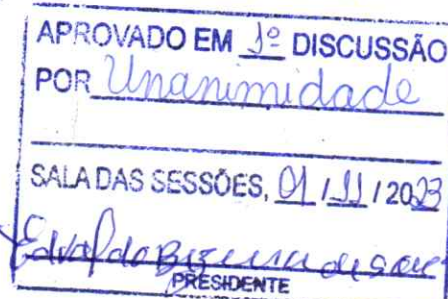 APROVADO EM 1º DISCUSSÃO
POR Unanimidade
SALA DAS SESSÕES, 01 / 11 / 2023
Edvaldo Bezerra de
PRESIDENTE